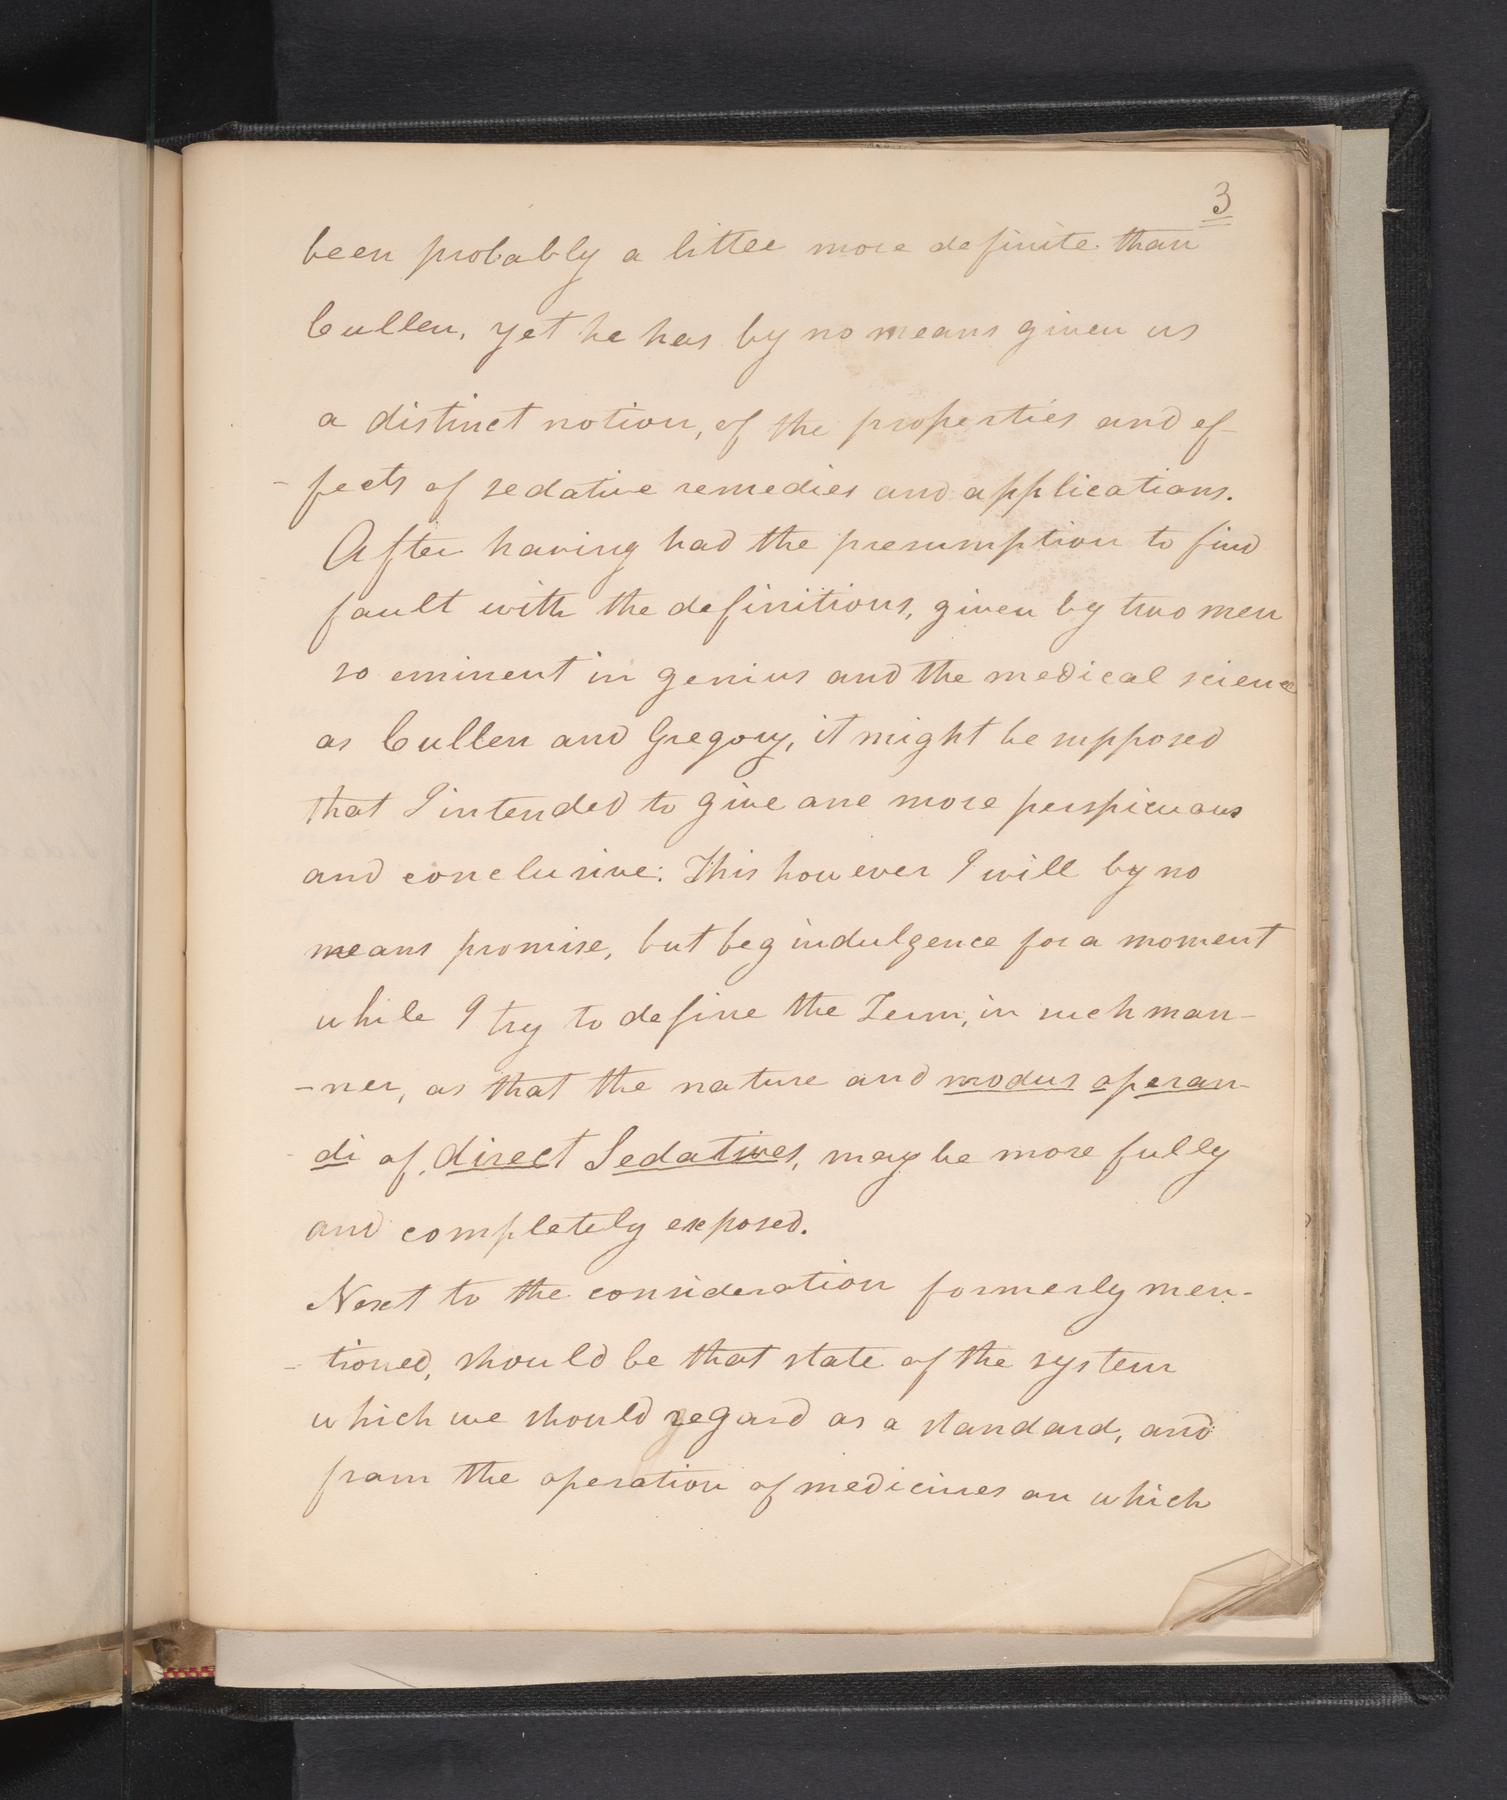 3
been probably a little more definite than
Cullen, yet he has by no means given us
a distinct notion, of the properties and ef-
-fects of sedative remedies and applications.
After having had the presumption to find
fault with the definitions, given by two men
so eminent in genius and the medical science
as Cullen and Gregory, it might be supposed
that I intended to give one more perspicuous
and conclusive. This however I will by no
means promise, but beg indulgence for a moment
while I try to define the Term, in such man-
-ner, as that the nature and modus operan-
di of direct Sedatives, may be more fully
and completely exposed.
Next to the consideration formerly men-
-tioned, should be that state of the system
which we should regard as a standard, and
from the operation of medicines on which